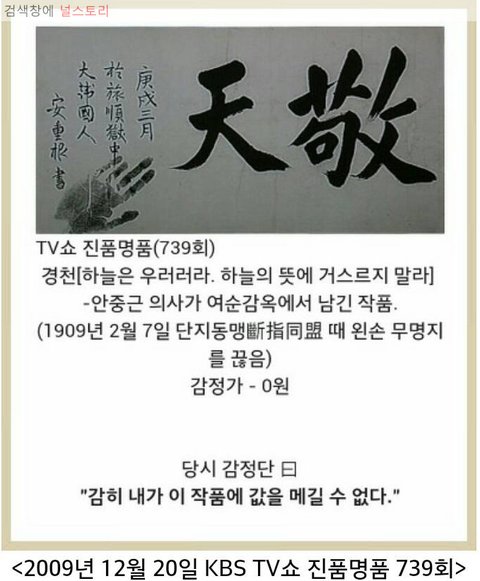 검색창에 널스토리
敬天
庚戌三月
於旅順獄中
大韓國人
安重根書
TV쇼 진품명품(739회)
경천[하늘은 우러러라. 하늘의 뜻에 거스르지 말라]
-안중근 의사가 여순감옥에서 남긴 작품.
(1909년 2월 7일 단지동맹斷指同盟 때 왼손 무명지
를 끊음)
감정가 - 0원
당시 감정단 曰
"감히 내가 이 작품에 값을 메길 수 없다."
<2009년 12월 20일 KBS TV쇼 진품명품 739회>